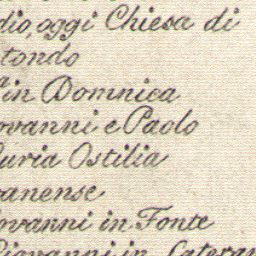 dio, oggi Chiesa di
tondo
in Domnica
ovanni e Paolo
uria Ostilia
anense
iovanni in Fonte
Giovanni in Latera